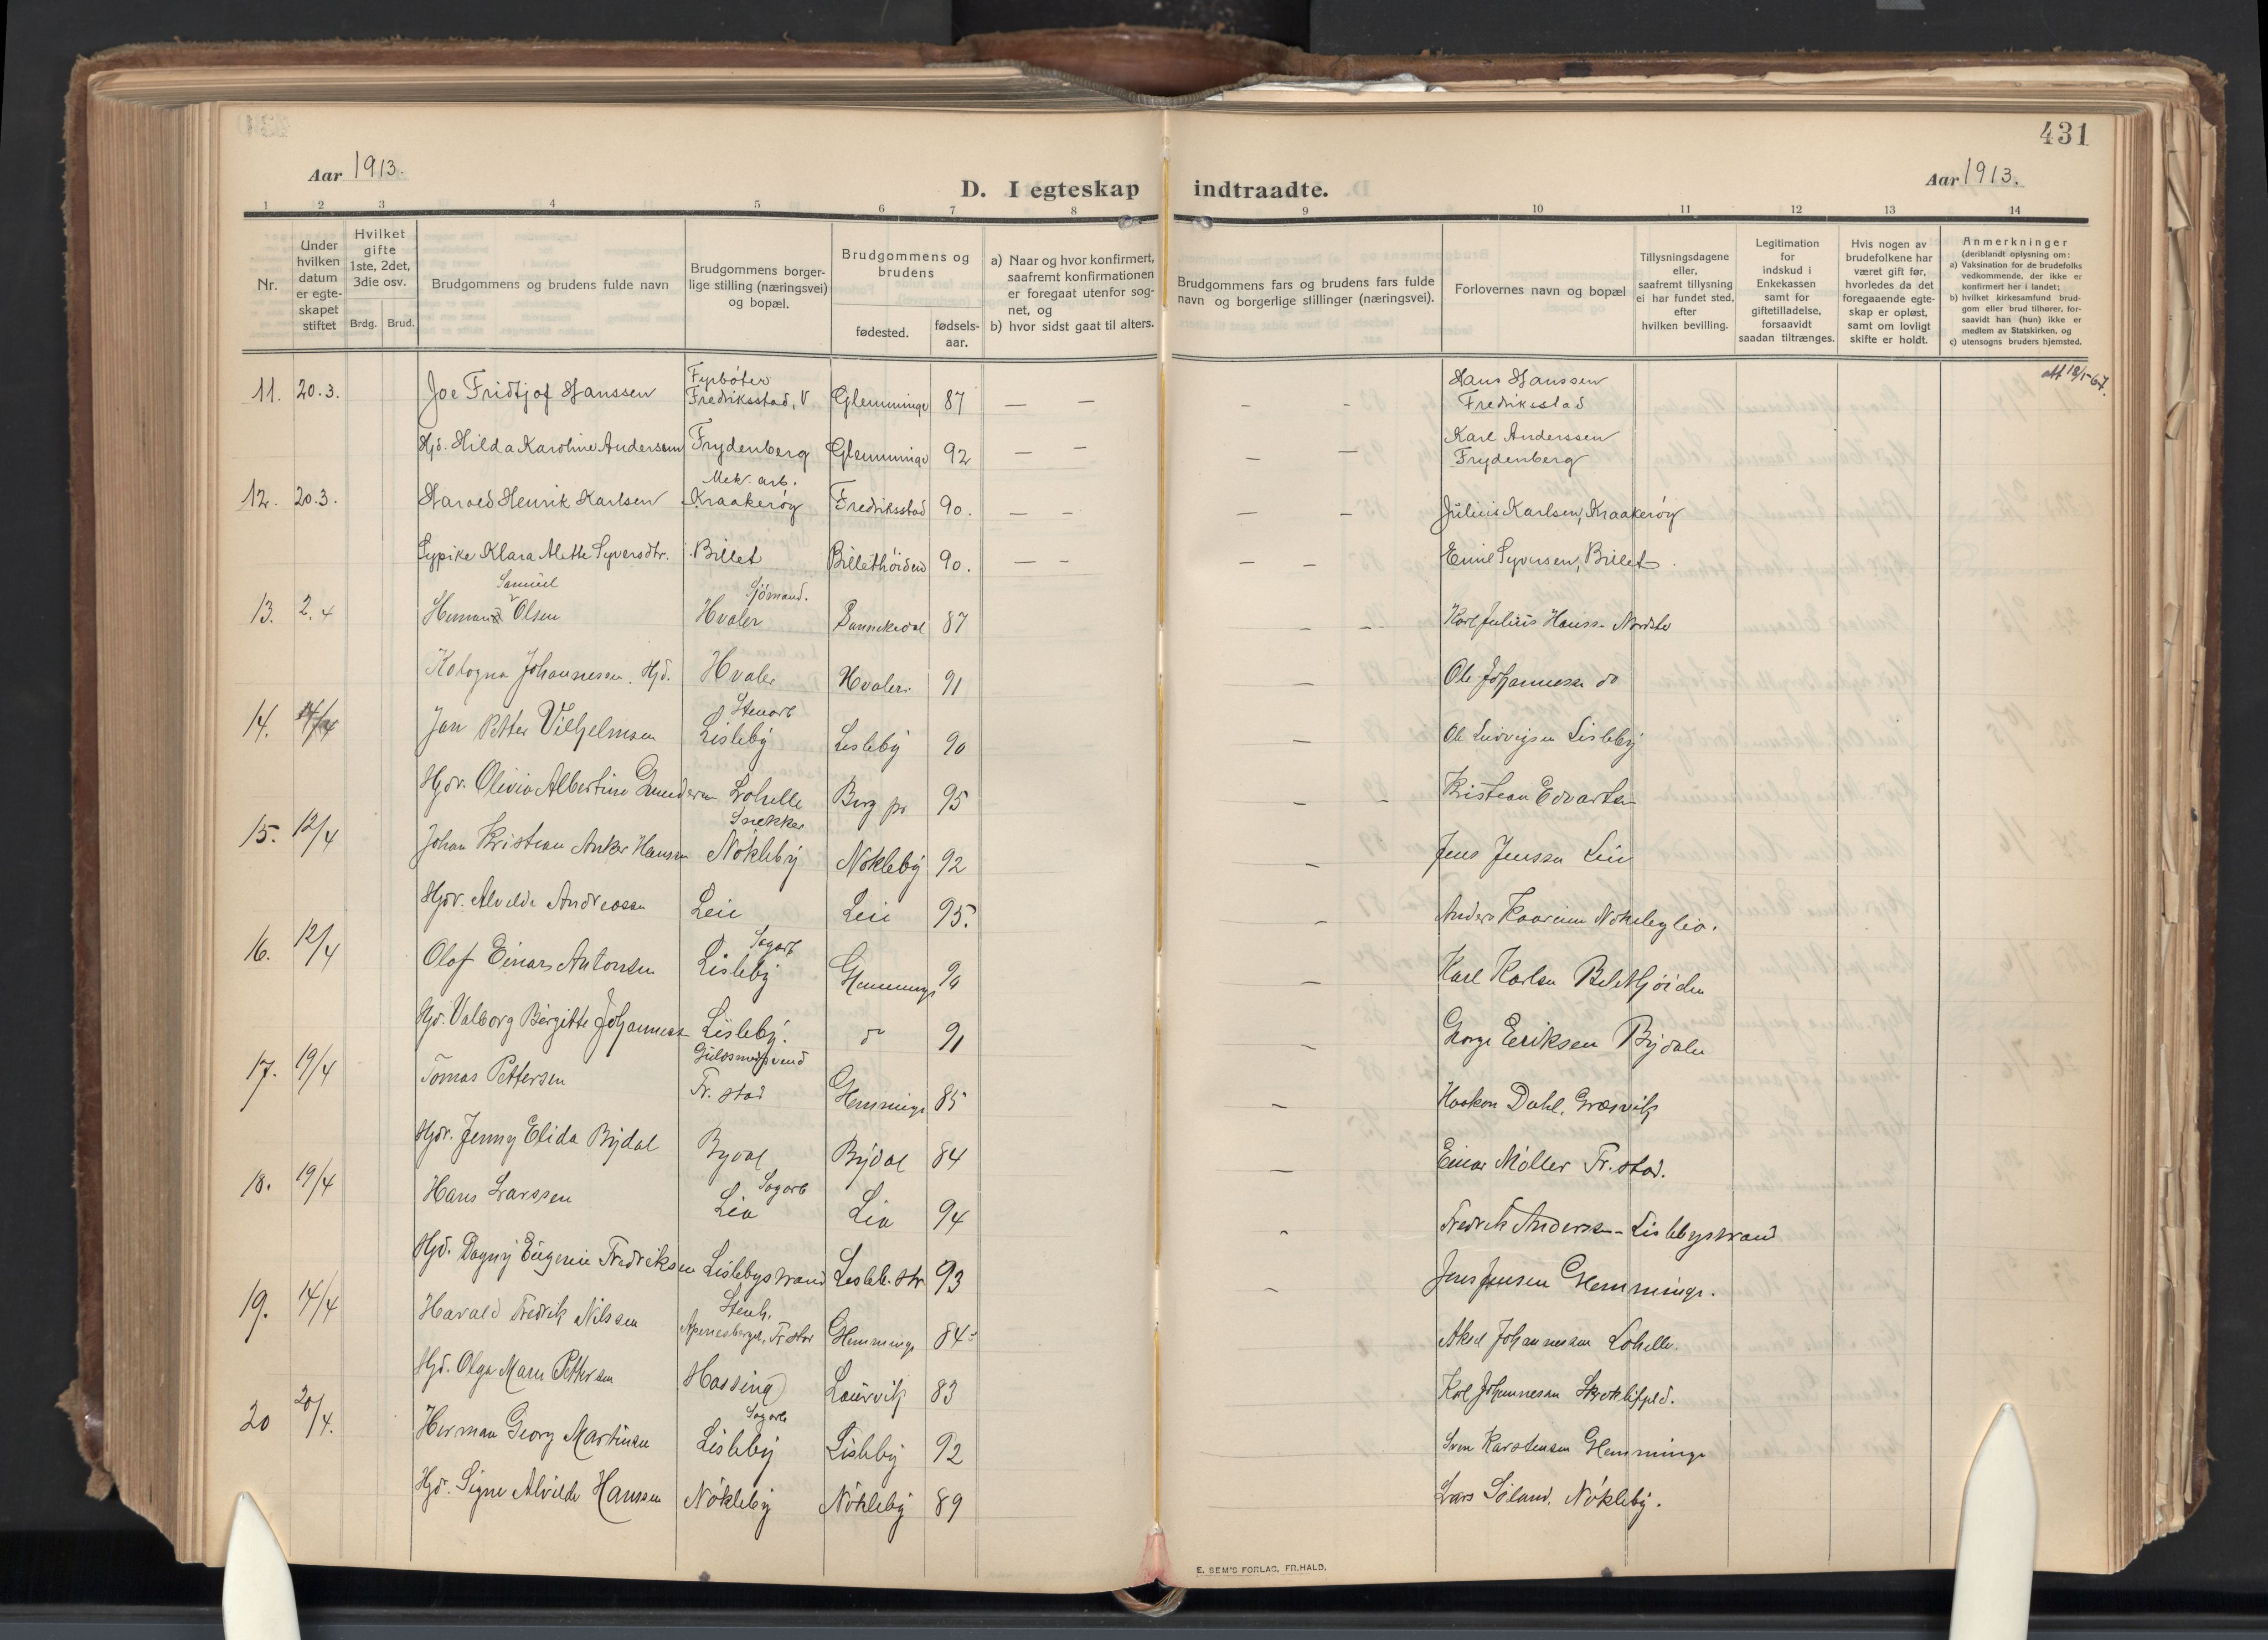 431
Aar 1913.
D. I egteskap indtraadte.
Aar 1913.
1 2 3 4 5 6 7 8 9 10 11 12 13 14
Nr.
Under hvilken datum er egte-skapet stiftet
Hvilket gifte 1ste, 2det, 3die osv.
Brdg. Brud.
Brudgommens og brudens fulde navn
Brudgommens borger-lige stilling (næringsvei) og bopæl.
Brudgommens og brudens
fødested. fødsels-aar.
a) Naar og hvor konfirmert, saafremt konfirmationen er foregaat utenfor sog-net, og
b) hvor sidst gaat til alters.
Brudgommens fars og brudens fars fulde navn og borgerlige stillinger (næringsvei).
Forlovernes navn og bopæl
Tillysningsdagene eller, saafremt tillysning ei har fundet sted, efter hvilken bevilling.
Legitimation for indskud i Enkekassen samt for giftetilladelse, forsaavidt saadan tiltrænges.
Hvis nogen av brudefolkene har været gift før, hvorledes da det foregaaende egte-skap er opløst, samt om lovligt skifte er holdt.
Anmerkninger (deriblandt oplysning om:
a) Vaksination for de brudefolks vedkommende, der ikke er konfirmert her i landet;
b) hvilket kirkesamfund brud-gom eller brud tilhører, for-saavidt han (hun) ikke er medlem av Statskirken, og
c) utensogns bruders hjemsted.
11. 20.3. Joe Fridtjof Hanssen Fyrbøter Fredriksstad, V Glemminge 87 — — - - Hans Hanssen Fredriksstad
Hjd. Hilda Karoline Anderssen Frydenberg Glemminge 92 — - — — Karl Anderssen Frydenberg
12. 20.3. Harald Henrik Karlsen Mek. arb. Kraakerøy Fredriksstad 90. — — — - Julius Karlsen, Kraakerøy
Sypike Klara Alette Syversdtr. Billet Billethöiden 90. — - — - Emil Syversen, Billet.
13. 2.4 Herman Samuel Olsen Sjömand. Hvaler 87 - -- Karl Julius Hanss-
Johannesen. Hjd. Hvaler Hvaler. 91 — Ole Johannesen do
14. Jan Petter Vilhjelmsen Stenarb Lisleby Lisleby 90 — Ole Ludvigsen Lisleby
Hjdr. Olivia Albertine Lohelle Berg pr 95 - - Kristian Edvartsen
15. 12/4 Johan Kristian Anker Hansen Snekker Nökleby Nökleby 92 — Jens Jenssen Lein
Hjdr. Alvilde Andreasen Leie Leie 95. - Anders
16. 12/4 Olaf Einar Antonsen Sagarb Lisleby Glemminge 90 — Karl Karlsen
Hjd. Valborg Birgitte Johannesen Lisleby. do 91 - Georg Eriksen Bydalen
17. 19/4 Tomas Pettersen Guldsmedsvend Fr. stad Glemminge 85 - Haakon Dahl, Græsvik
Hjdr. Jenny Elida Bydal Bydal Bydal 84 — Einar Møller Fr. stad.
18. 19/4 Hans Larssen Sagarb Lia Lia 94 - Fredrik Andersen - Lislebystrand
Hjd. Dagny Eugenie Fredriksen Lislebystrand Lisleb. str 93 - Jens Jensen Glemminge.
19. 14/4 Harald Fredrik Nilssen Stenh. Apenesberget, Fr. stad Glemminge 84 Aksel Johannesen Lohelle.
Hjd. Olga Marie Pettersen Hassing Laurvik 83 Karl Johannesen
20 20/4. Herman Georg Martinsen Sagarb Lisleby Lisleby 92 Sven Karstensen Glemminge
Hjd. Signe Alvilde Hanssen Nökleby Nökleby 89 Lars Nökleby.
E. SEM'S FORLAG, FR.HALD.